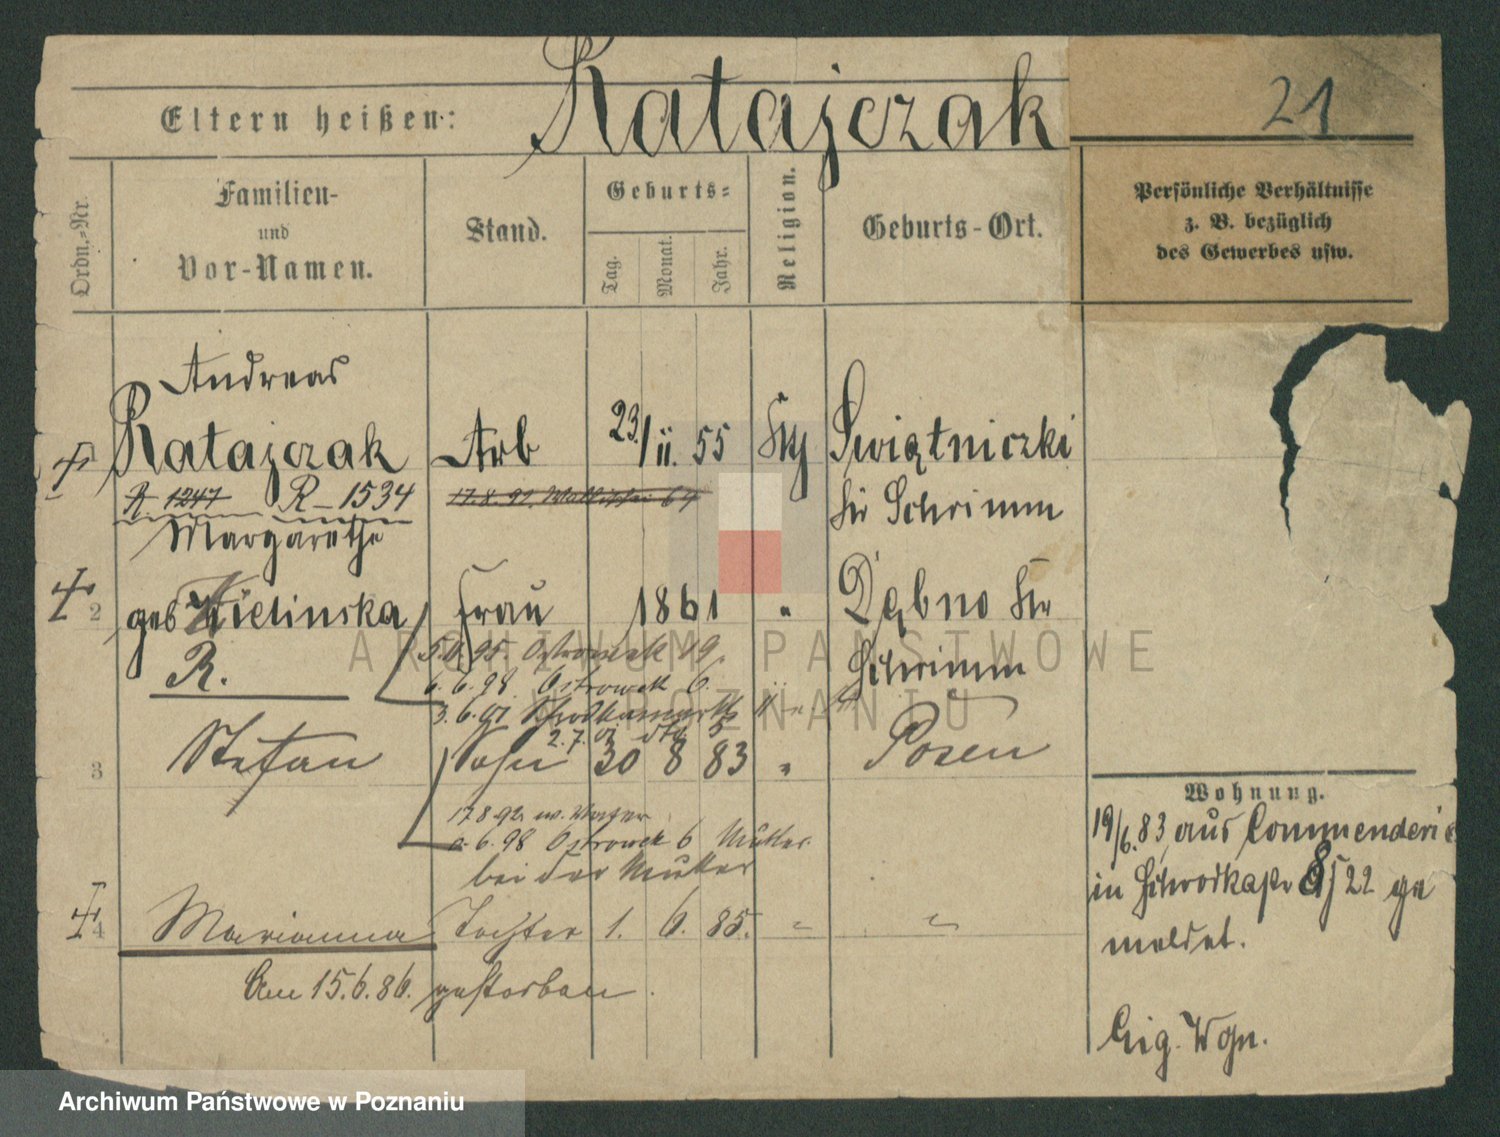 Ratajczak
21
Eltern heißen:
Ordn.-Nr.
Familien-
und
Vor-Namen.
Stand.
Geburts-
Tag.
Monat.
Jahr.
Religion.
Geburts-Ort.
Persönliche Verhältnisse
z. B. bezüglich
des Gewerbes usw.
Andreas
Ratajczak Arb 23./11. 55 Świątniczki
R 1247 R-1534 17.8.92. 64 Kr Schrimm
Margarethe
2 geb Zielinska Frau 1861 " Dąbno Kr
R. 95. Ostrowek 19. Schrimm
6.6.98 Ostrowek 6.
3.6.01
2.7.
3 Stefan Sohn 30 8 83 " Posen
17.8.92 w. Vater
6.98 Ostrowek 6 Mutter
bei der Mutter
4 Marianna Tochter 1. 6. 85. " "
Am 15.6.86. gestorben.
Wohnung.
19/6.83 aus Commenderie
in Schrodkastr 22 ge
meldet.
Eig. Wgn.
ARCHIWUM PAŃSTWOWE
W POZNANIU
Archiwum Państwowe w Poznaniu